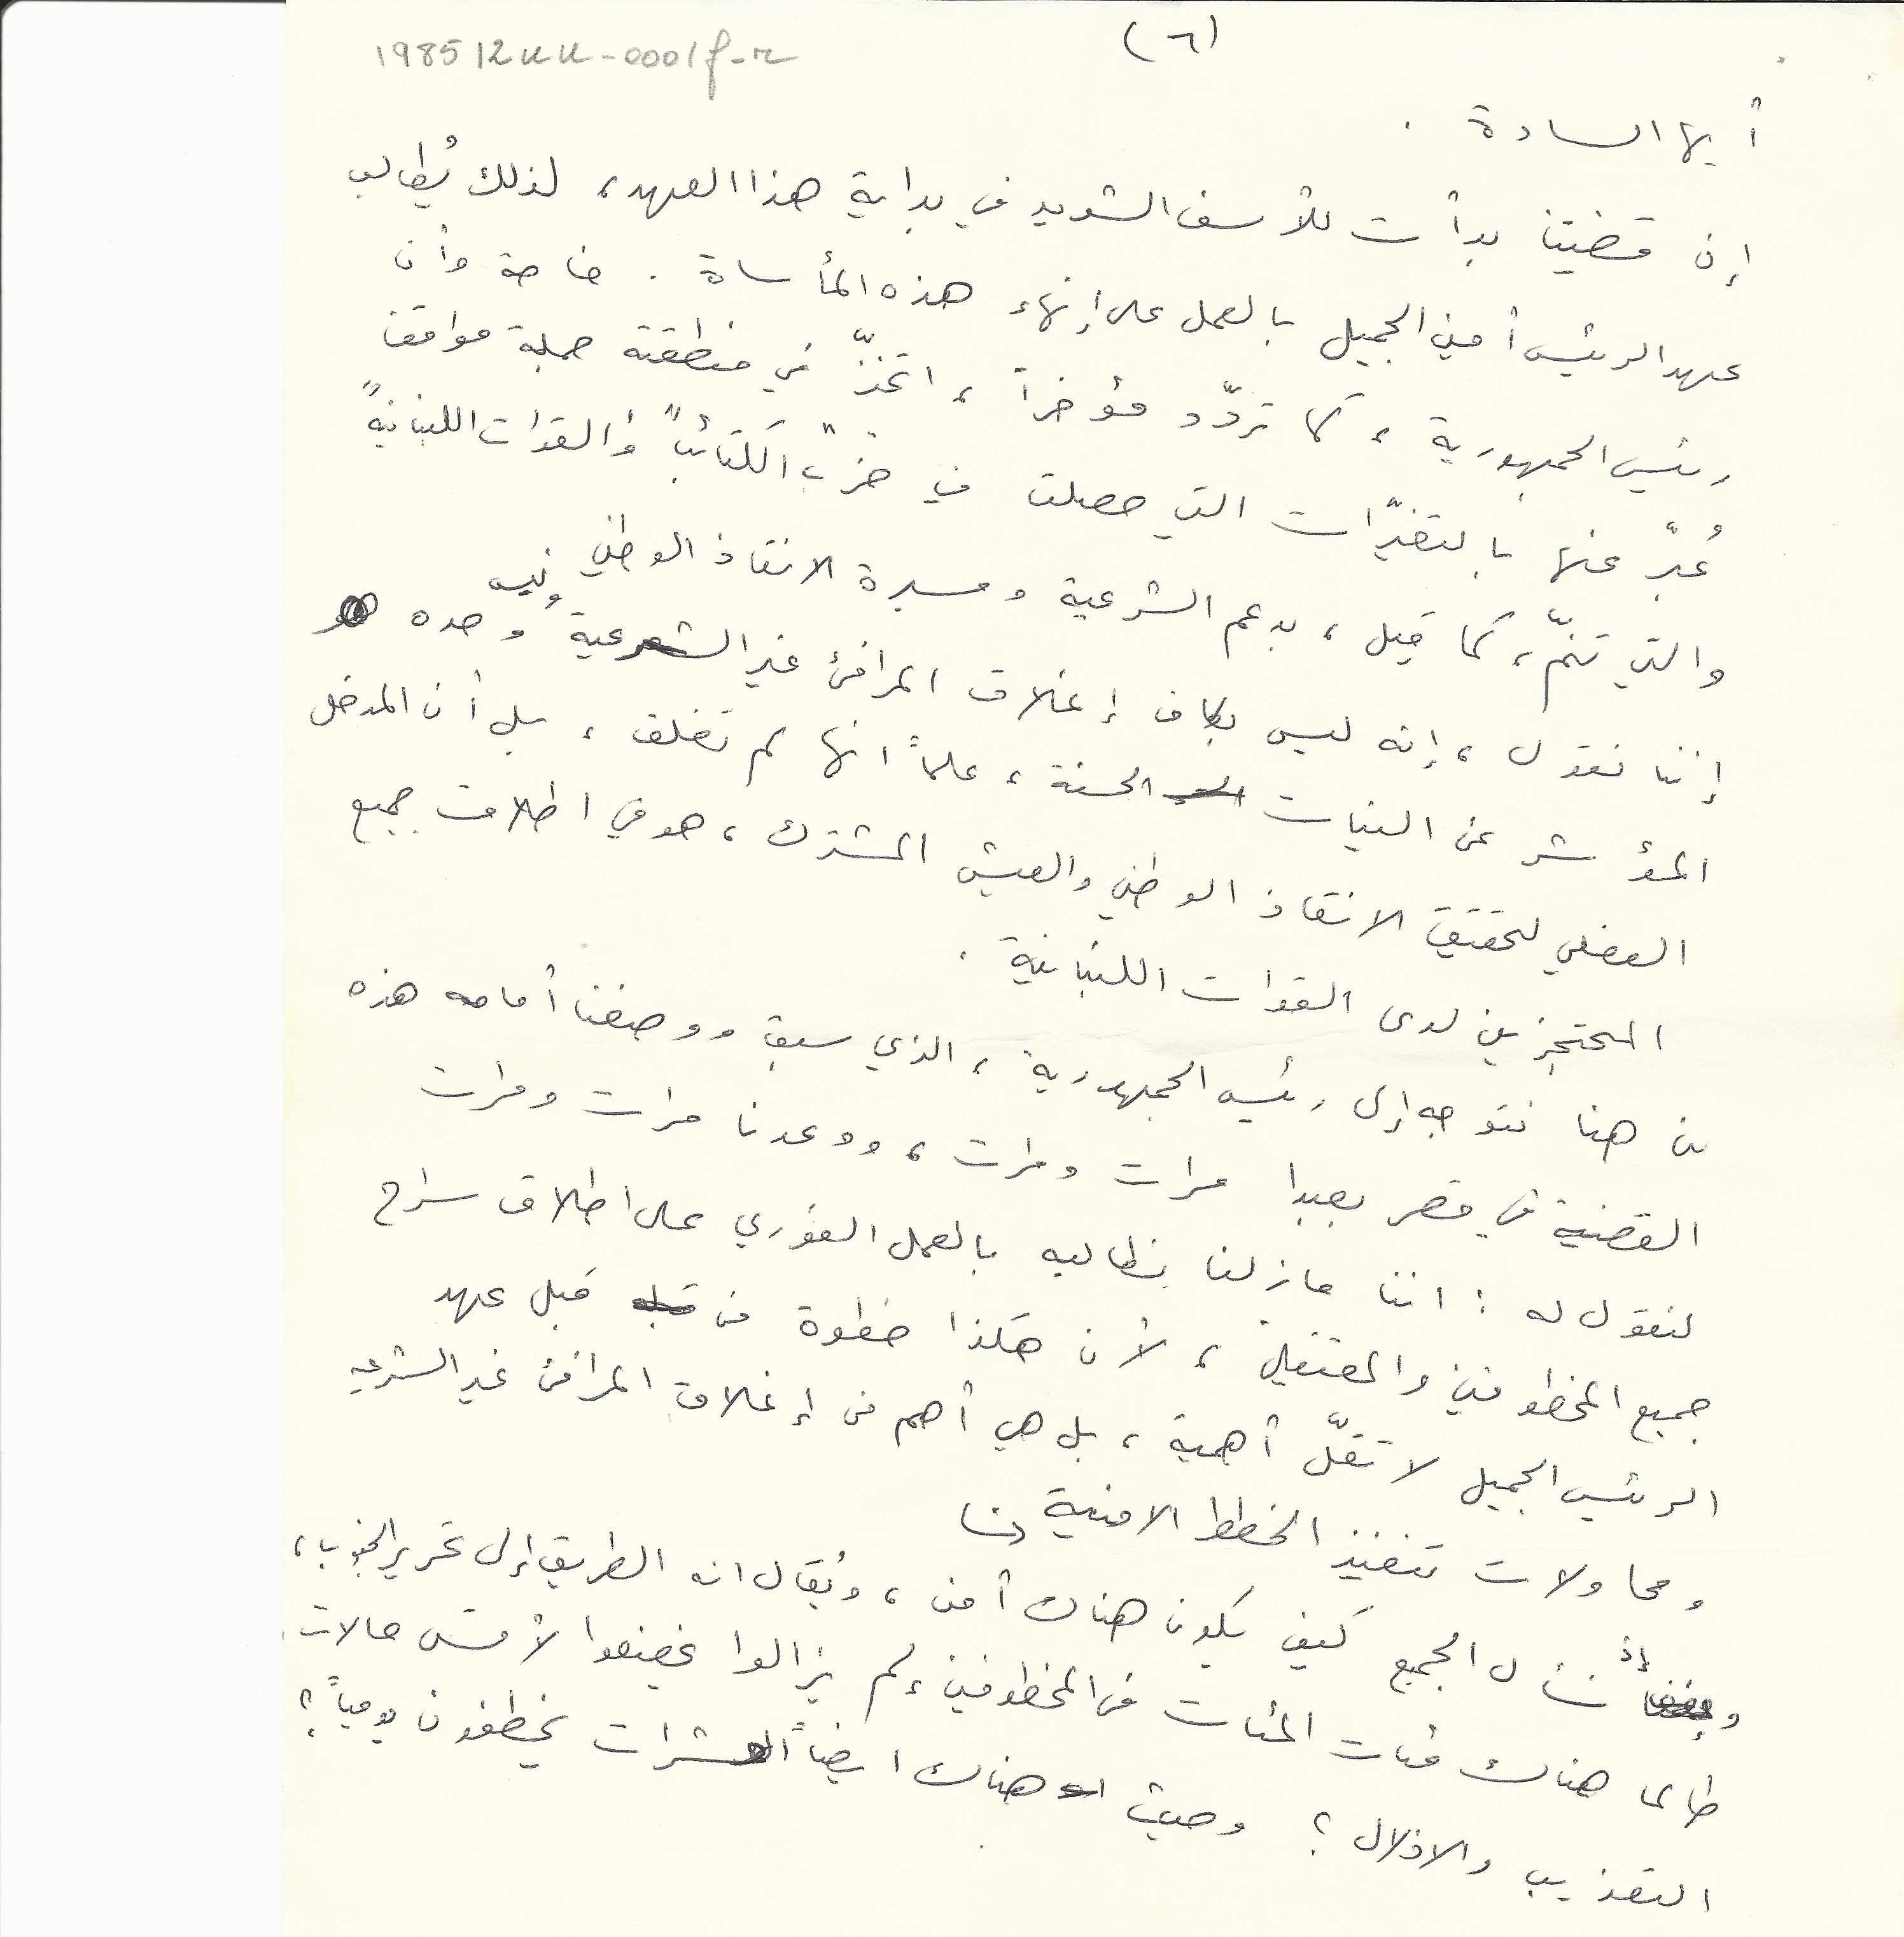 198512uu-0001f-r
(٦)
أيها السادة .
إن قضيتنا بدأت للأسف الشديد في بداية هذا العهد، لذلك يُطالب
عهد الرئيس أمين الجميل بالعمل على إنهاء هذه المأساة . خاصة وأن
رئيس الجمهورية ، كما تردّد مؤخراً ، اتخذّ في منطقته جملة مواقف
عُبّر عنها بالتغيّرات التي حصلت في حزب "الكتائب" و"القوات اللبنانية"
والتي تنمّ، كما قيل ، بدعم الشرعية ومسيرة الانقاذ الوطني
إننا نقول ، إنه ليس بكاف إغلاق المرافئ غير الشرعية وليس وحده هو
المؤشر عن النيات الحسنة ، علماً انها لم تغلق ، بل أن المدخل
الفعلي لتحقيق الانقاذ الوطني والعيش المشترك ، هو في اطلاق جميع
المحتجزين لدى القوات اللبنانية .
من هنا نتوجه إلى رئيس الجمهورية ، الذي سبق ووضعنا أمامه هذه
القضية في قصر بعبدا مرات ومرات ، ووعدنا مرات ومرات
لنقول له : اننا مازلنا نطالبه بالعمل الفوري على اطلاق سراح
جميع المخطوفين والمعتقلين ، لأن هكذا خطوة من قبل عهد
الرئيس الجميل لا تقلّ أهمية ، بل هي أهم من إغلاق المرافئ غير الشرعية
ومحاولات تنفيذ الخطط الامنية
وإذ نسأل الجميع كيف يكون هناك أمن ، ويُقال انه الطريق إلى تحرير الجنوب ،
طالما هناك مئات المئات من المخطوفين لم يزالوا يخضعوا لأقسى حالات
التعذيب والاذلال ؟ وحيث هناك ايضاً العشرات يخطفون يومياً ؟